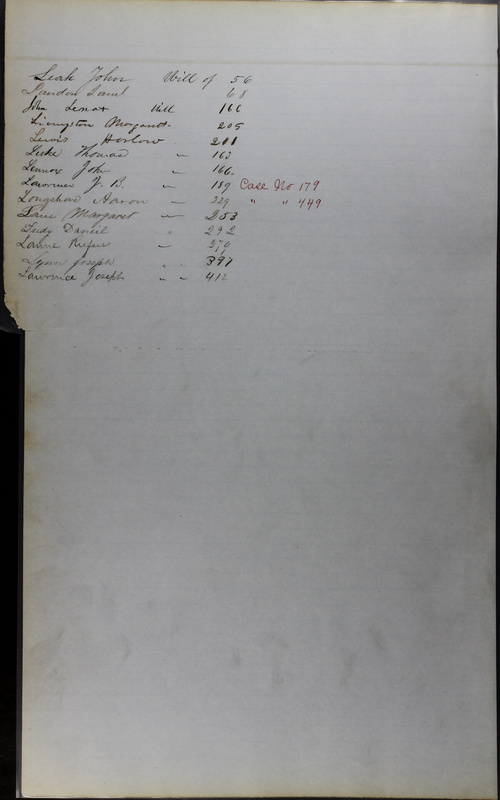 Leak John Will of 56
Landon Saml 68
John Lenox Will 166
Livingston Margaret 205
Lewis Harlow 211
Luke Thomas " 163
Lennox John " 166
Lawrence J. B. " 189 Case No 179
Longshore Aaron — 229 " " 449
Lane Margaret — 253
Daniel " 292
Rufus " 370
Lynn Joseph " " 397
Lawrence Joseph " " 412